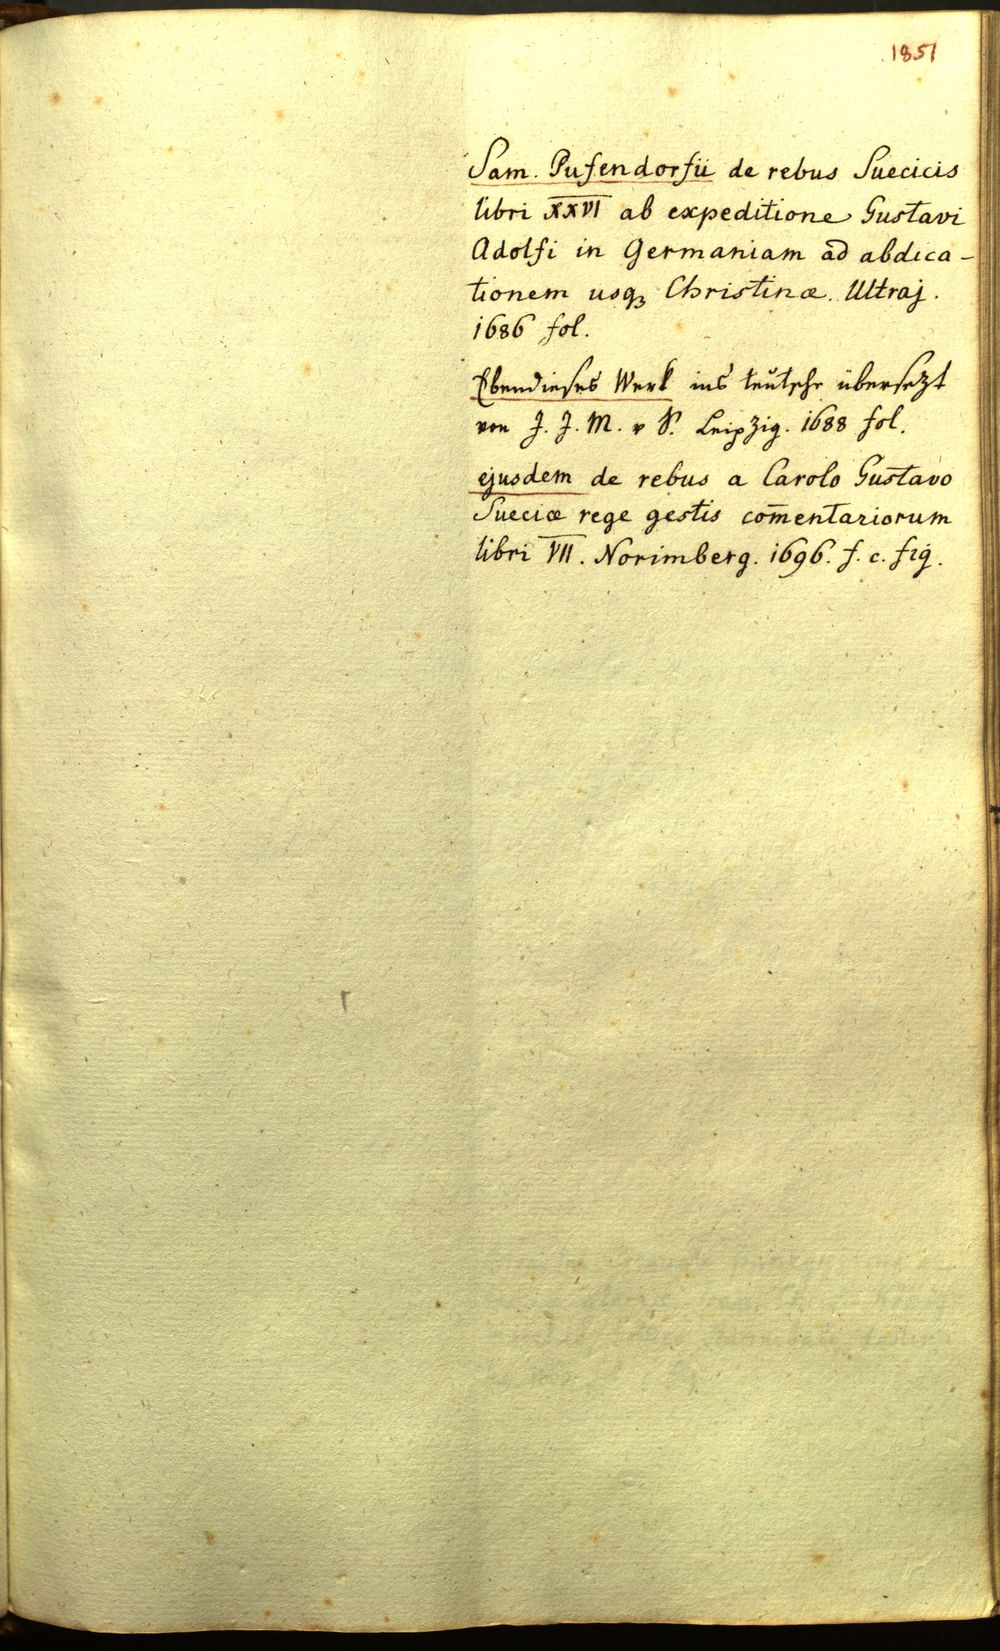 1851
Sam. Pufendorfii de rebus Suecicis
libri XXVI ab expeditione Gustavi
Adolfi in Germaniam ad abdica-
tionem usq3 Christinæ. Ultraj.
1686 fol.
Ebendieses Werk ins teutsche übersezt
von J. J. M. v S. Leipzig. 1688 fol.
ejusdem de rebus a Carolo Gustavo
Sueciæ rege gestis com̅entariorum
libri VII. Norimberg. 1696. f. c. fig.